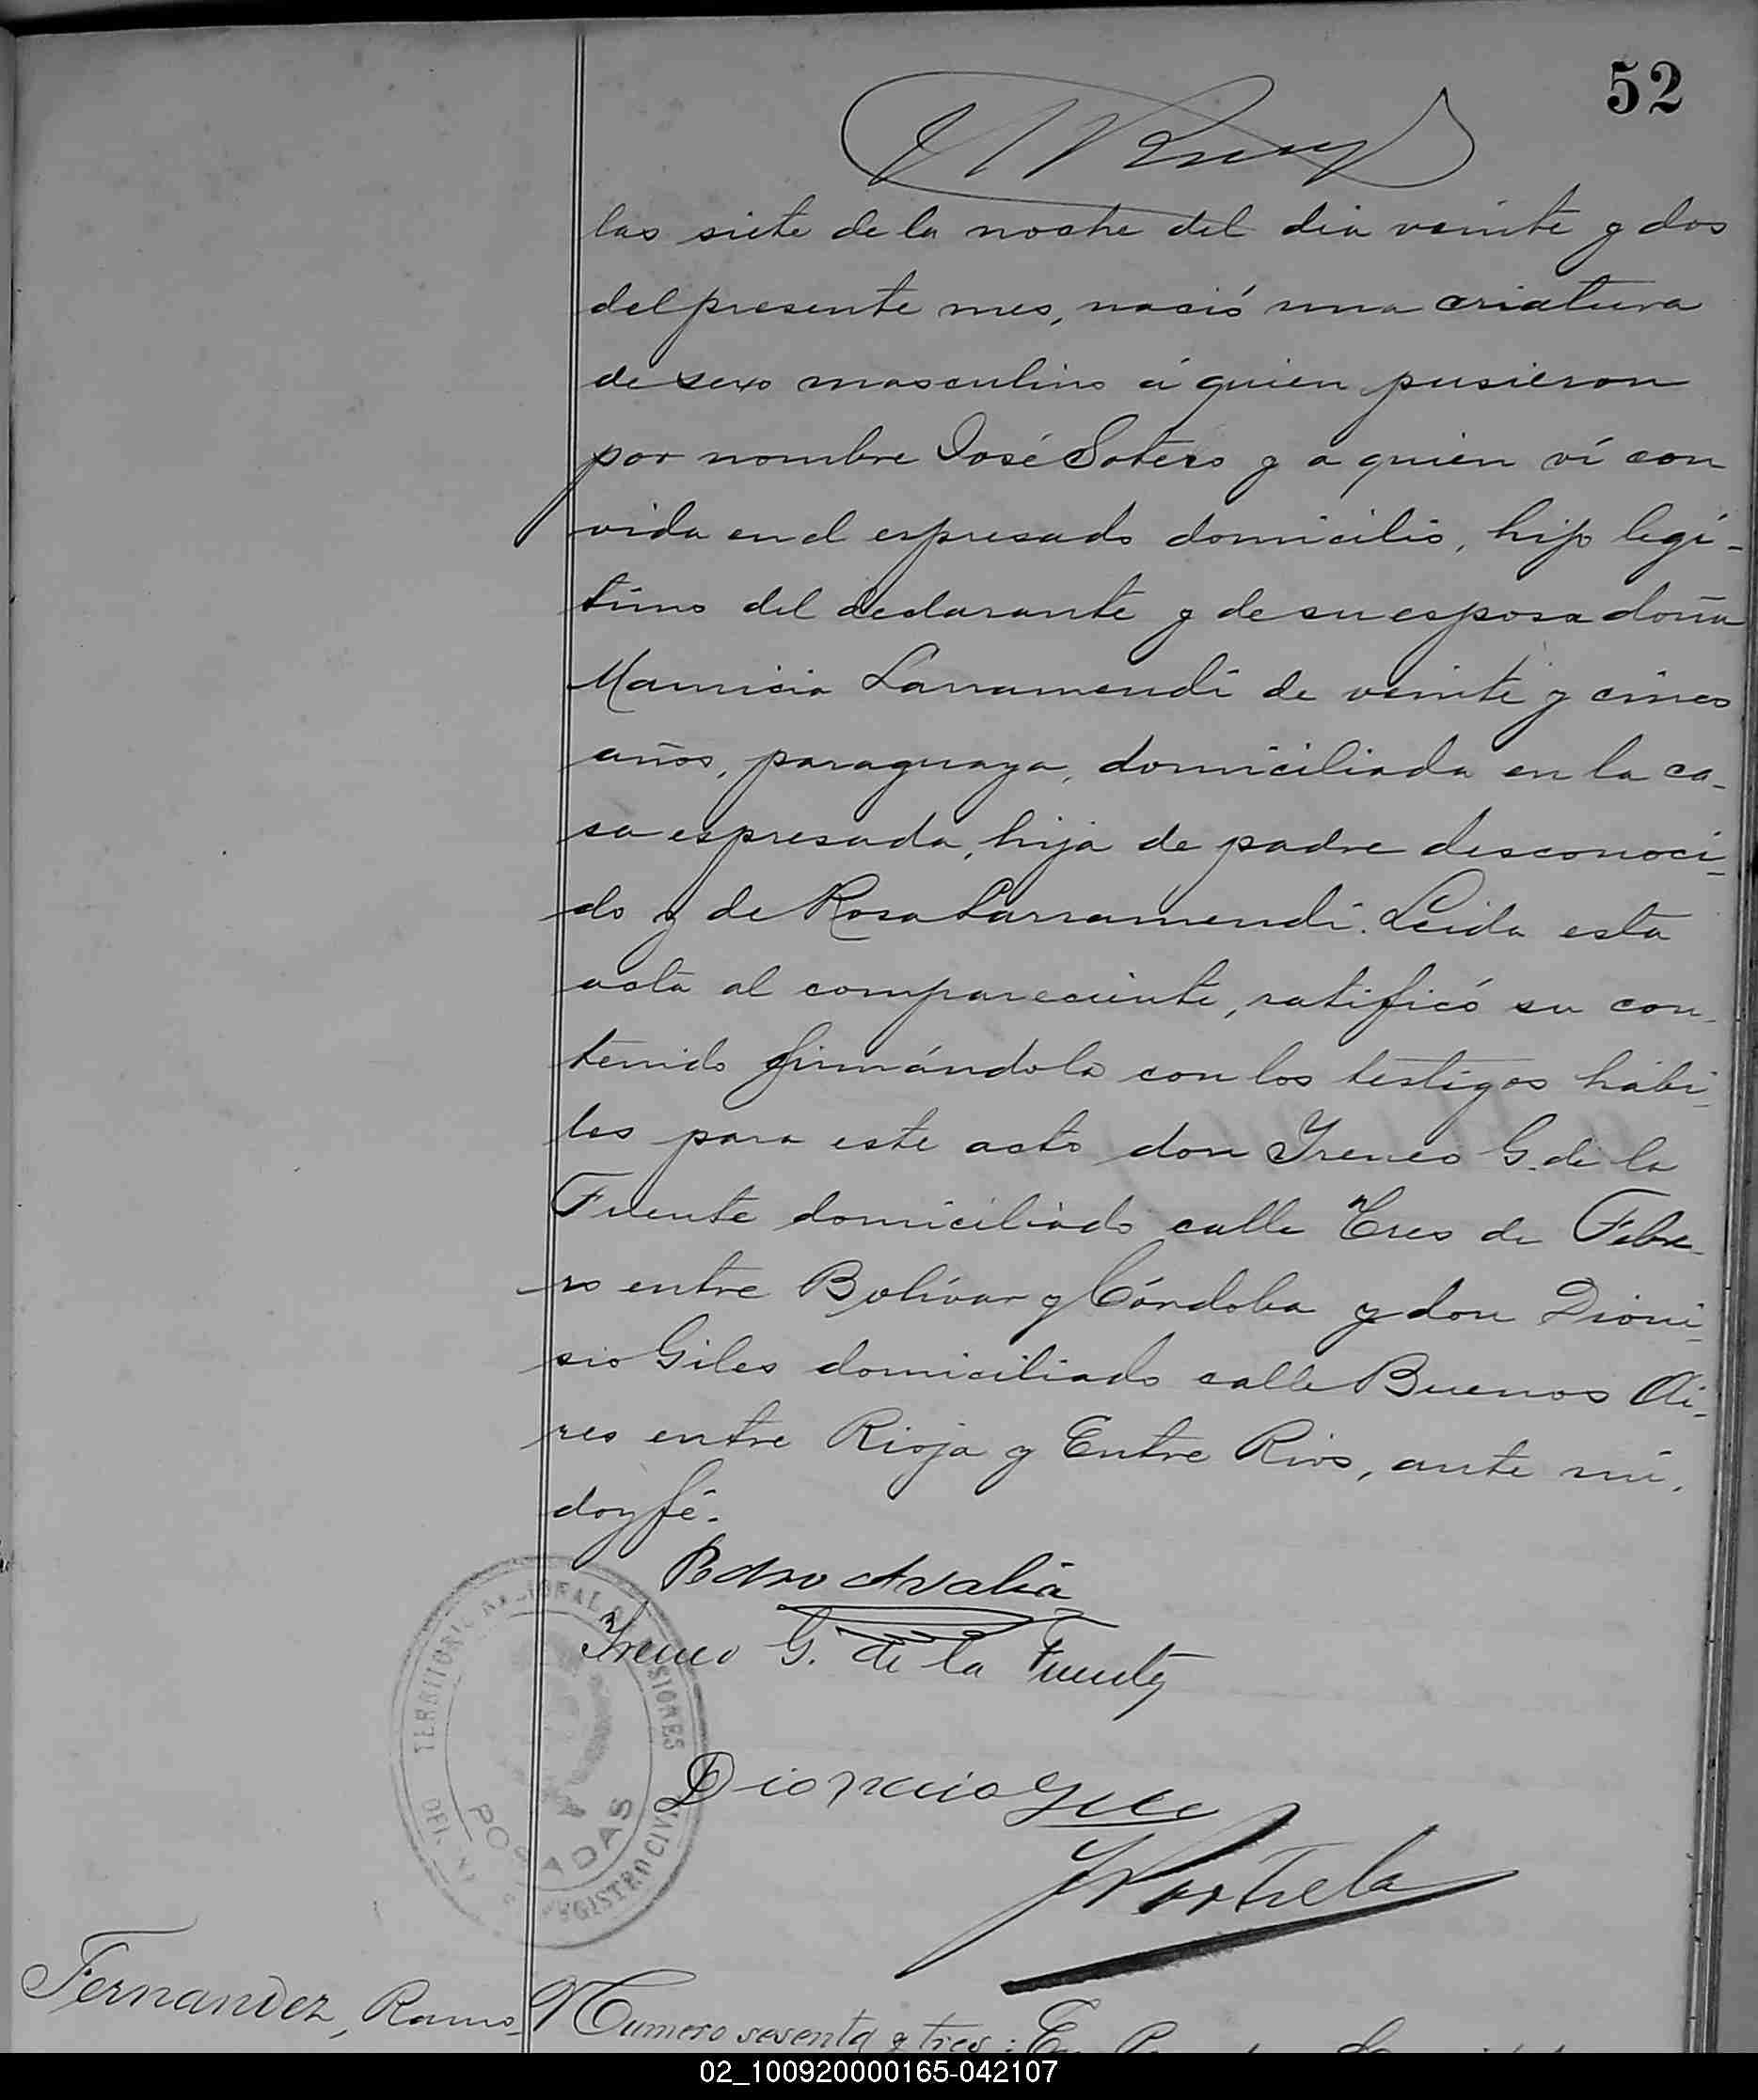 52
las siete de la noche del dia veinte y dos
del presente mes, nació una criatura
de sexo masculino á quien pusieron
por nombre José Sotero y a quien ví con
vida en el espresado domicilio, hijo legí-
timo del declarante y de su esposa doña
Mauricia Larramendi de veinte y cinco
años, paraguaya, domiciliada en la ca-
sa espresada, hija de padre desconoci-
do y de Rosa Larramendi. Leida esta
acta al compareciente, ratificó su con-
tenido firmándola con los testigos hábi-
les para este acto don Ireneo G. de la
Fuente domiciliado calle Tres de Febre-
ro entre Bolívar y Córdoba y don Dioni-
sio Giles domiciliado calle Buenos Ai-
res entre Rioja y Entre Rios, ante mí,
doy fé.
Pedro Avalia
Ireneo G. de la Fuente
TERRITORIO NACIONAL DE MISIONES
REGISTRO CIVIL
POSADAS
Fernandez, Ramo-
Numero sesenta y tres: En
02_100920000165-042107